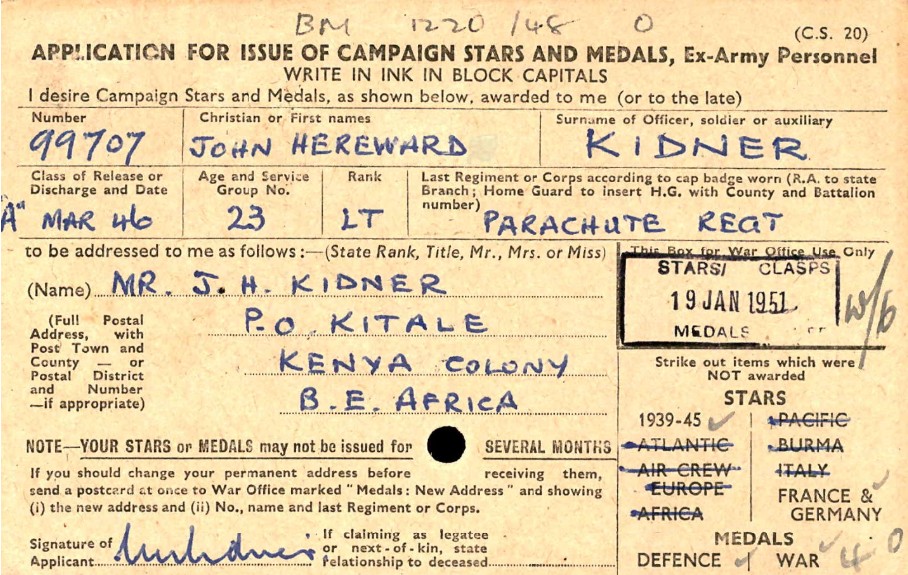 BM 1220/48 0
(C.S. 20)
APPLICATION FOR ISSUE OF CAMPAIGN STARS AND MEDALS, Ex-Army Personnel
WRITE IN INK IN BLOCK CAPITALS
I desire Campaign Stars and Medals, as shown below, awarded to me (or to the late)
Number
99707
Christian or First names
JOHN HEREWARD
Surname of Officer, soldier or auxiliary
KIDNER
Class of Release or
Discharge and Date
"A" MAR 46
Age and Service
Group No.
23
Rank
LT
Last Regiment or Corps according to cap badge worn (R.A. to state
Branch; Home Guard to insert H.G. with County and Battalion
number)
PARACHUTE REGT
to be addressed to me as follows:—(State Rank, Title, Mr., Mrs. or Miss)
(Name) MR. J. H. KIDNER
(Full Postal
Address, with
Post Town and
County — or
Postal District
and Number
—if appropriate)
P.O. KITALE
KENYA COLONY
B.E. AFRICA
This Box for War Office Use Only
STARS/ CLASPS
19 JAN 1951
MEDALS
Strike out items which were
NOT awarded
STARS
1939-45
ATLANTIC
AIR CREW
EUROPE
AFRICA
PACIFIC
BURMA
ITALY
FRANCE &
GERMANY
MEDALS
DEFENCE
WAR
40
NOTE—YOUR STARS or MEDALS may not be issued for SEVERAL MONTHS
If you should change your permanent address before receiving them,
send a postcard at once to War Office marked "Medals: New Address" and showing
(i) the new address and (ii) No., name and last Regiment or Corps.
Signature of
Applicant
If claiming as legatee
or next-of-kin, state
relationship to deceased